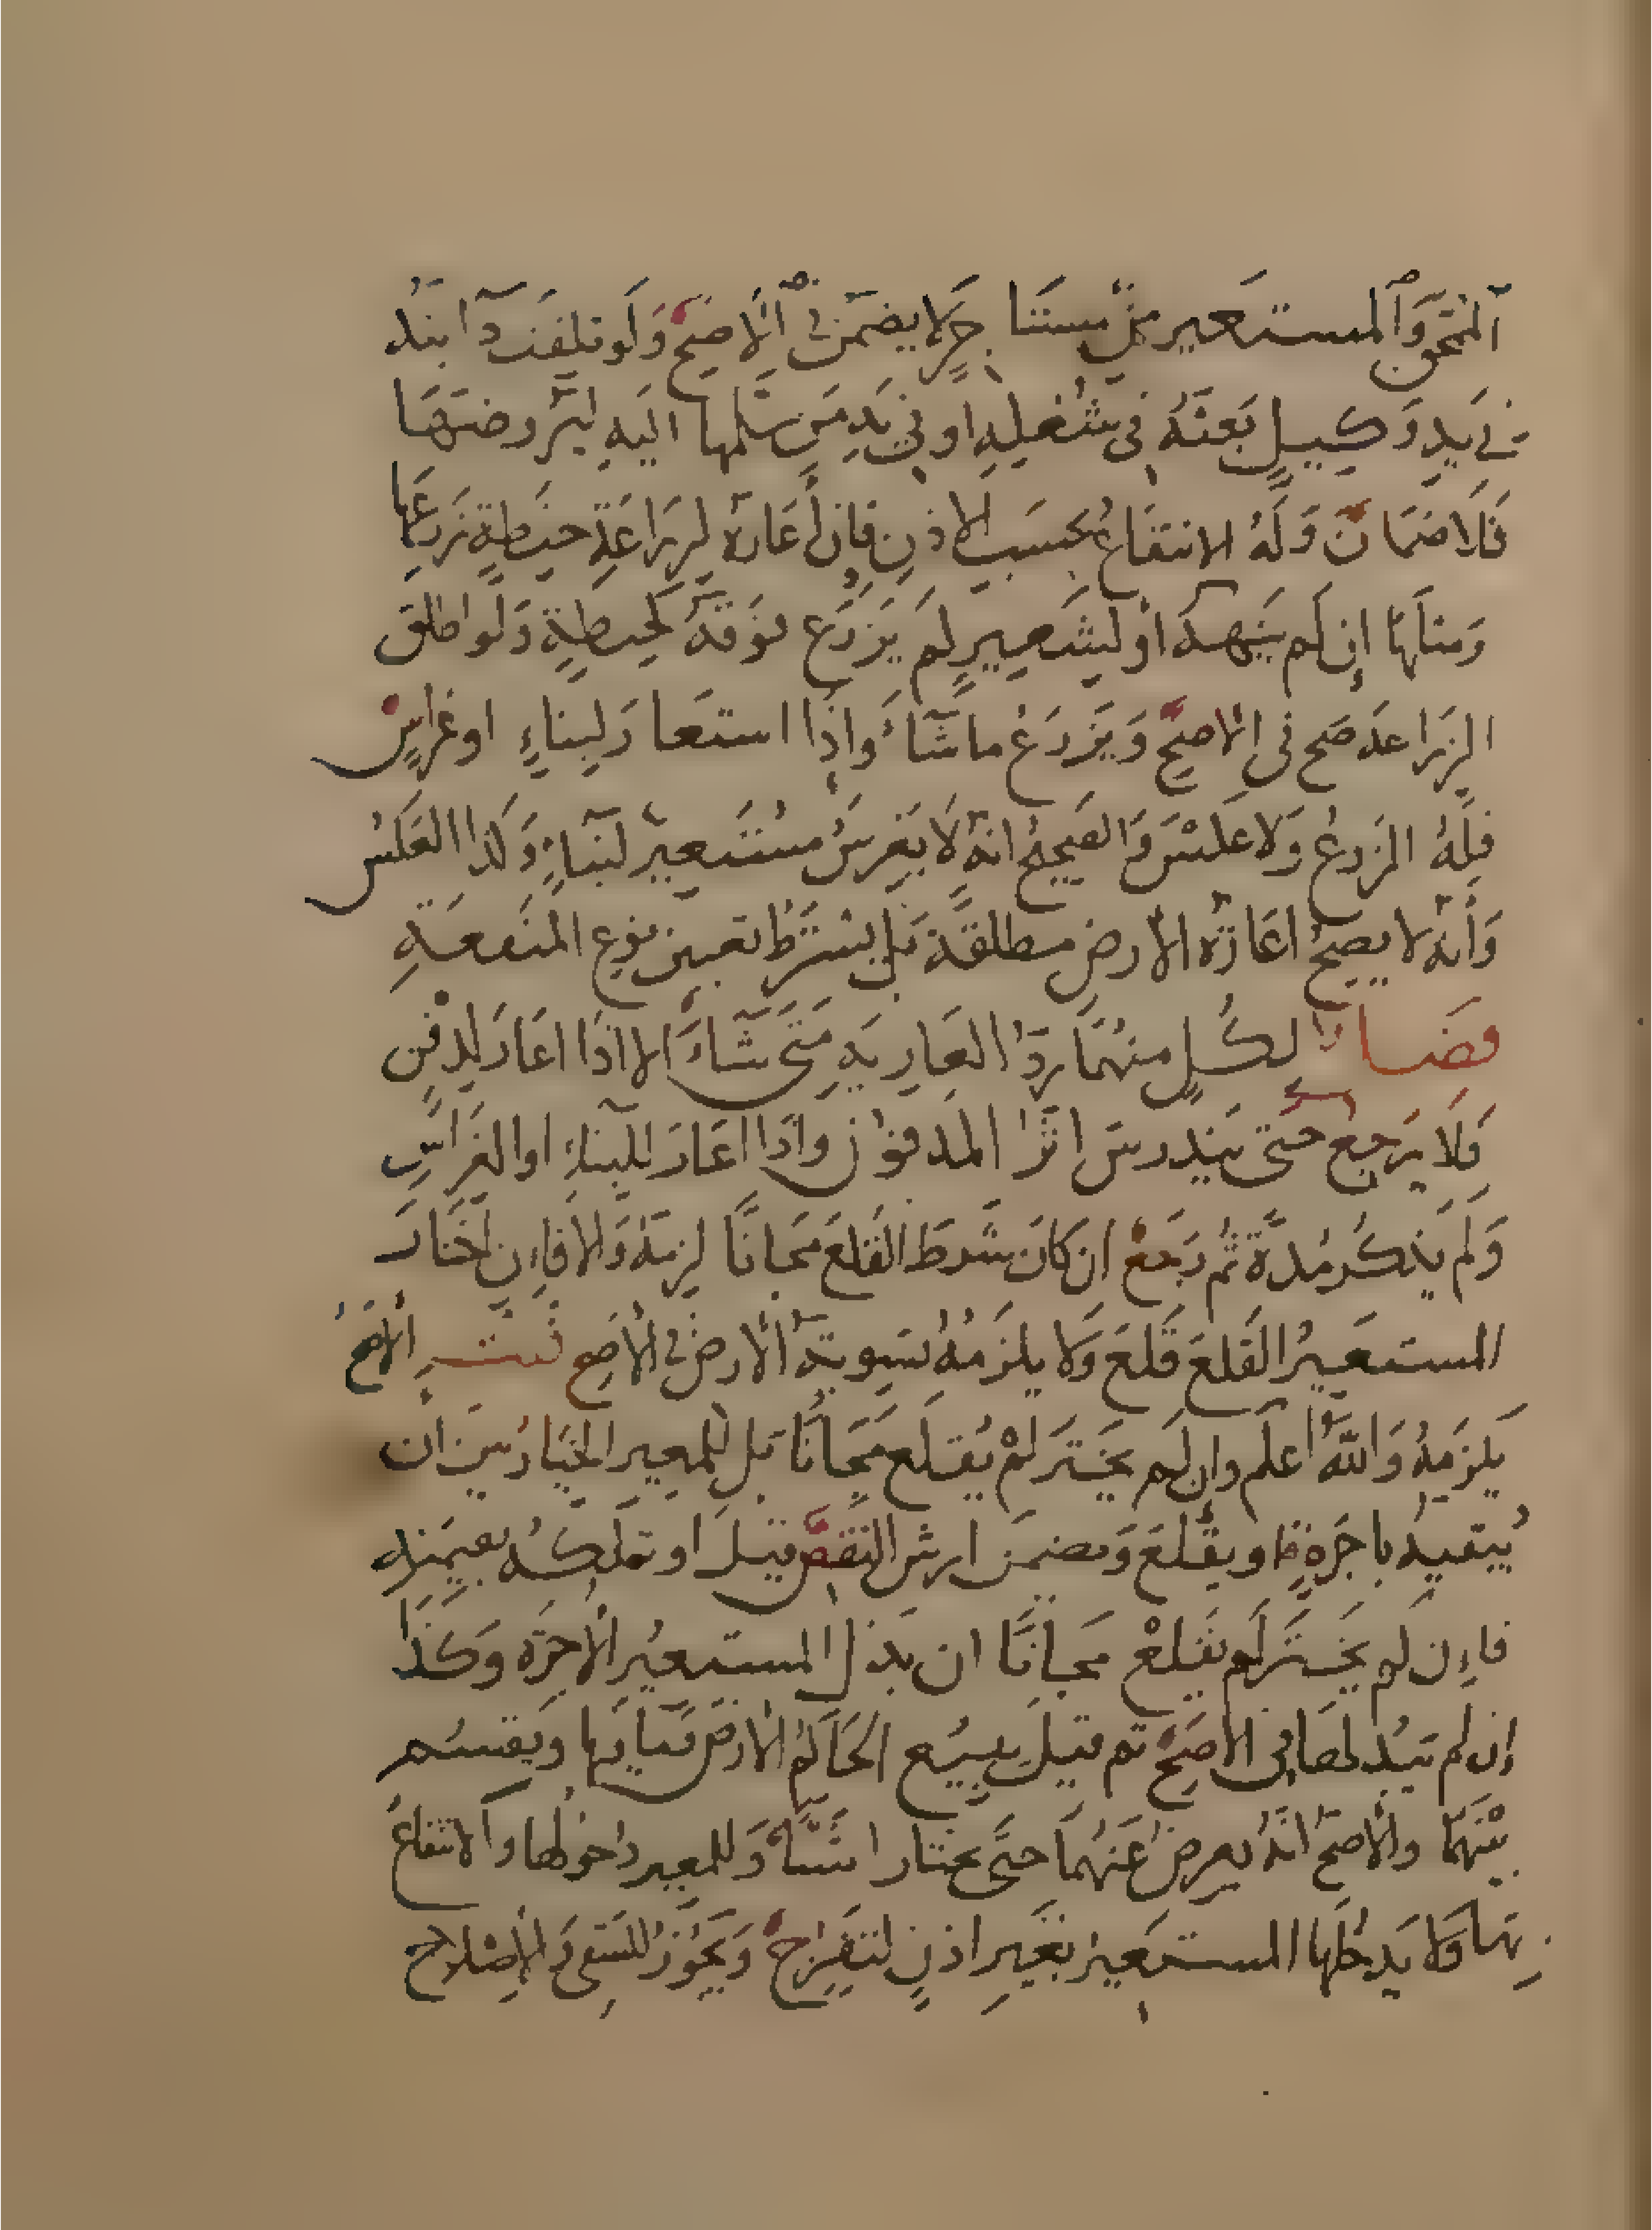 المنمحق وَالمستعَير مِن مستَاجِرٍ لا يضمَن في الأصحِّ وَلَو تلِفَت دَابته
في يَدِ وَكِيلٍ بَعثهُ في شغلِهِ او في يَدِ مَن سَلمها اليَهِ ليَروضهَا
فَلَا ضمَانَ وَلَهُ الانتفَاعُ بحسَبِ الاذنِ فان أعَارهُ لِزرَاعَةِ حنطةٍ زرَعَها
وَمثلَها إن لَم يَنهَهُ أو لِشَعِيرٍ لم يَزرَع فوقَهُ كَحِنطةٍ وَلَو اطلق
الزرَاعَة صَح في الاصحِّ وَيَزرَعُ ما شَآءَ وَاذا استعَارَ لِبناءٍ او غرَاسٍ
فلهُ الزرعُ وَلا عكسَ وَالصَحِيحُ انهُ لَا يَغرِسُ مُستَعِيرٌ لبنَآءٍ وَكذا العَكسُ
وَأنهُ لا يصِحُّ اعَارَةُ الأرضِ مطلقَةً بَل يشترَطُ تعيين نوعِ المنفعَةِ
فصَل لكُلٍ منهُمَا رَدُّ العَارِيَةِ مَتَى شَآءَ الا اذَا اعَارَ لِدفنٍ
فَلَا يَرجِعُ حتى يَندرسَ اثرُ المَدفون وَاذَا اعَارَ للبِنآءِ او الغِرَاسِ
وَلَم يَذكُر مُدةً ثُم رَجعَ ان كَانَ شَرطَ القَلعَ مَجانًا لزِمَهُ وَالا فإن اختَارَ
المستعَيرُ القَلعَ قَلعَ وَلا يلزَمُهُ تسَوِيَةُ الأرض في الأصَحِّ قلت الأصحُّ
يَلزَمهُ وَاللَّهُ اعلَم وان لَم يَختَر لمْ يُقلَع مَجَانًا بَل لِلمعيرِ الخيَارُ بين ان
يُبقيهُ باجرَةٍ او يقلعَ وَيضمَن ارش النقصِ قيلَ او يتملكُه بقيمَتِه
فإن لَم يَختَر لَم يقلعْ مَجانًا ان بَذل المستعيُر الأجرَة وَكذَا
إن لم يَبذلهَا في الاصَحِّ ثم قيلَ يبيعُ الحَاكمُ الأرض بمَا فيها وَيقسُم
بَيْنَهمَا وَالأصحُّ انهُ يعرِض عَنهُمَا حتَّى يختارا شَيئًا وَللمعِير دخولُها وَالانتفاعُ
بهَا وَلا يَدخلهَا المستعَير بغيرِ اذنٍ لتفرجٍ وَيَجوزُ للسَقي وَالإصْلاح